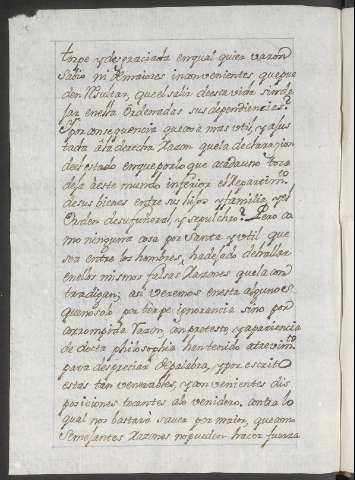 torpe y desgraciada en qual quier varon
sabio ni demaines inconvenientes que pue
den resultar, que el salir de esta vida sin de
jar en ella ordenadas sus dependiencias?
Y por consequencia que cosa mas vtil, y ajus
tada à la derecha razon que la declarazion
de su estado en que por lo que à cada uno toca
deja à este mundo inferior el repartimto
de sus bienes entre sus hijos y familia, y el
orden de su funeral, y sepulchro? Pero co
mo ninguna cosa por santa y vtil que
sea entre los hombres, ha dejado de hallar
en ellos mismos falsas razones que la con
tradigan; asi veremos en esta algunos
que no solo por torpe ignorancia sino por
corrompida razon, con pretexto y apariencia
de docta philosophia han tenido atrevimto
para despreciar de palabra, y por escrito
estas tan venerables, y convenientes dis
posiciones tocantes alo venidero. contra lo
qual nos bastarà saver por maior, que como
semejantes razones no pueden hacer fuerza